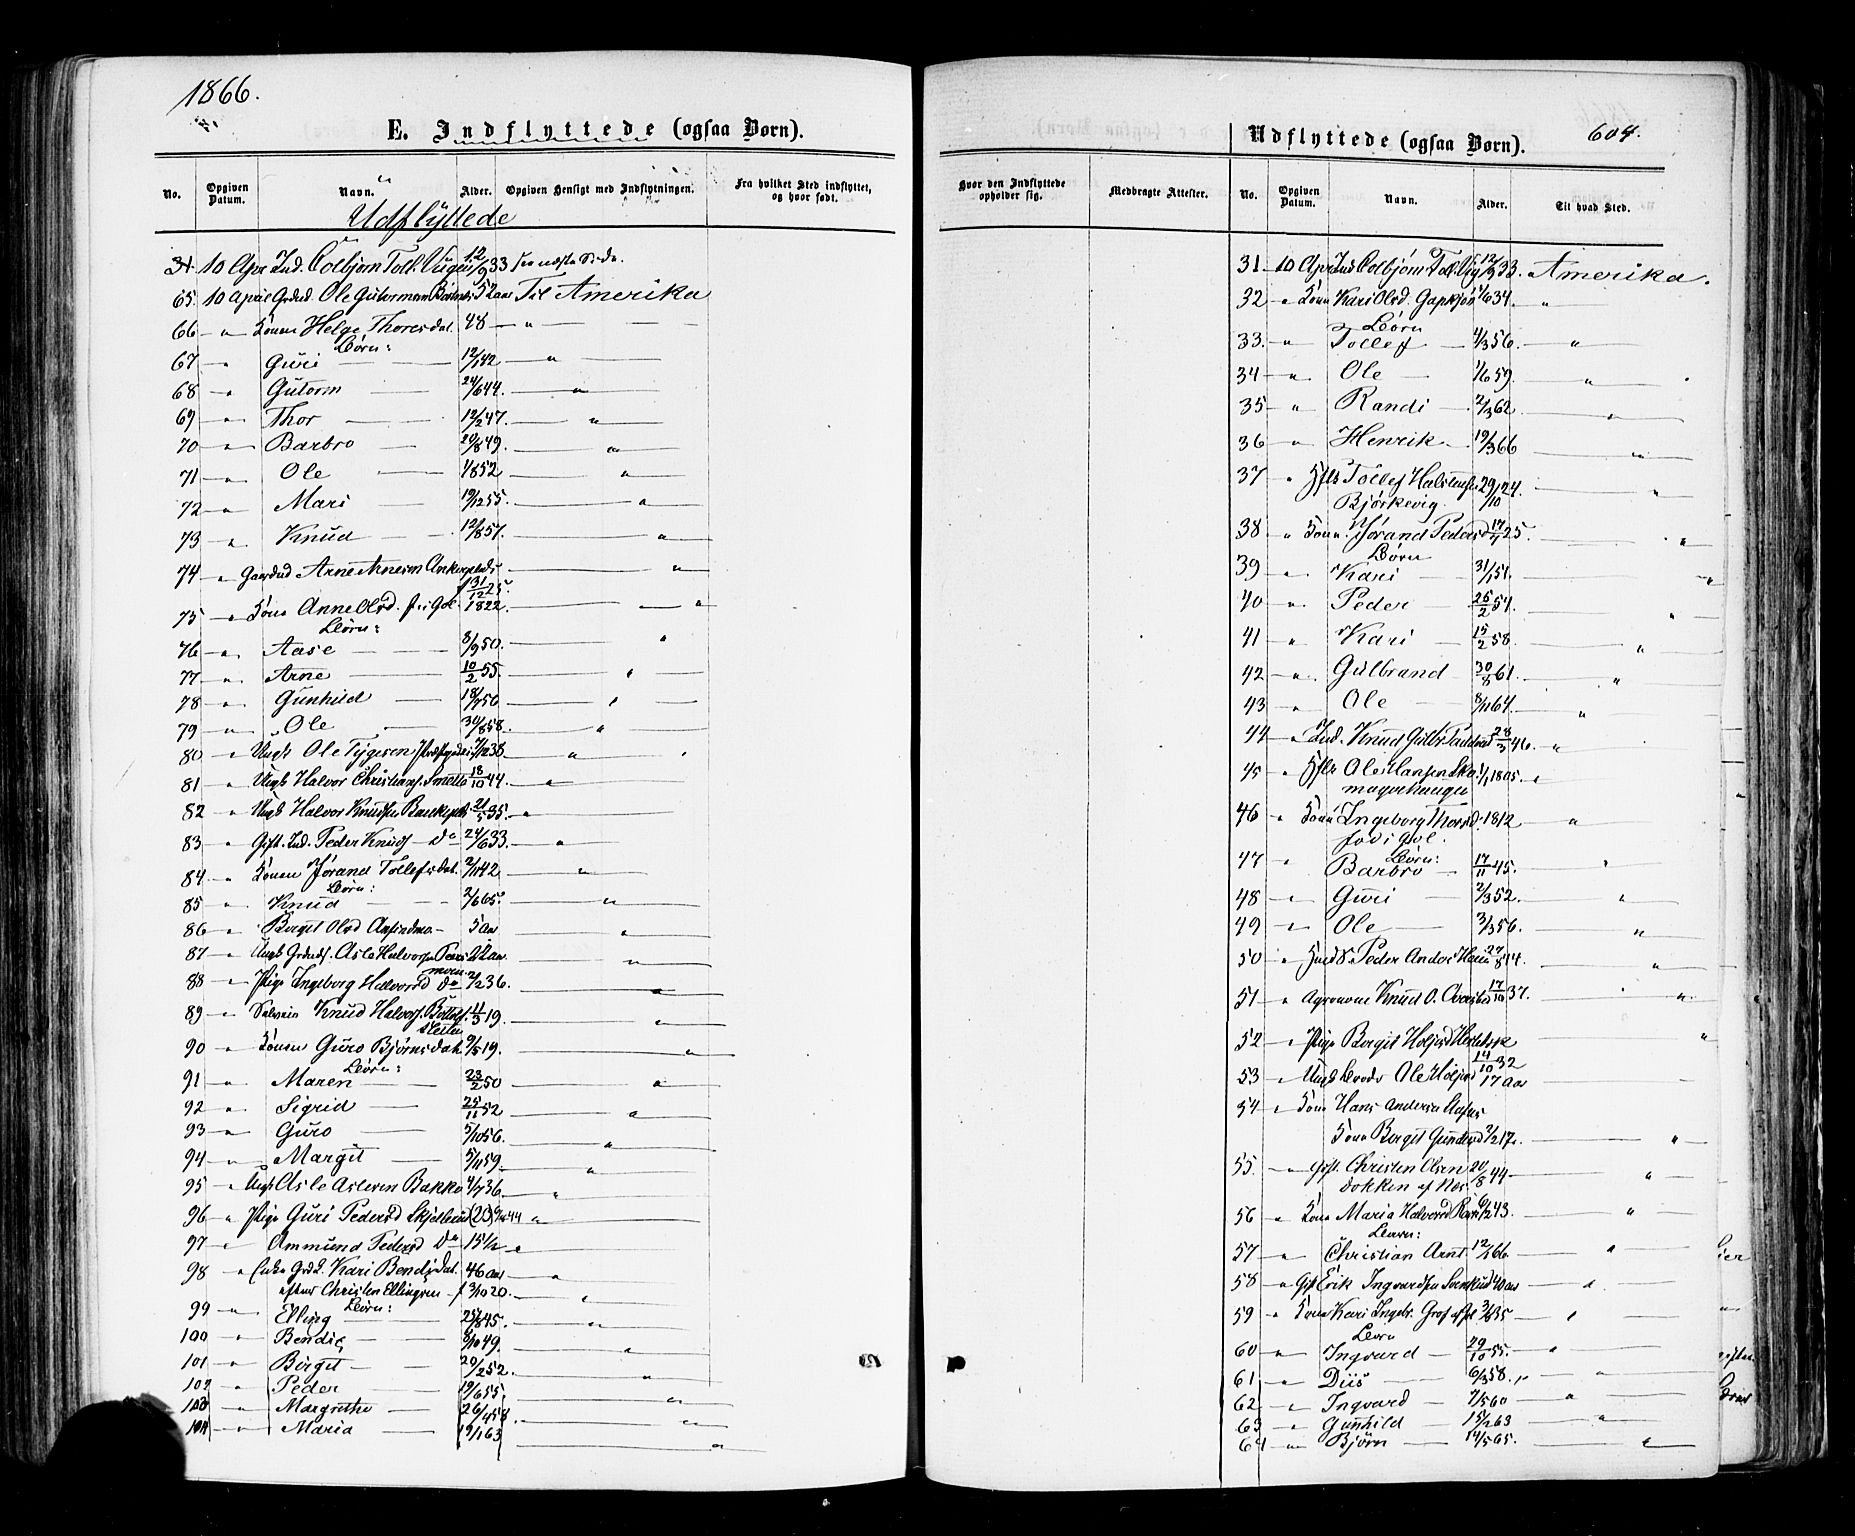 1866.
E. Indflyttede (ogsaa Børn).
No. Opgiven Datum. Navn. Alder. Opgiven Hensigt med Indflytningen. Fra hvilket Sted indflyttet, og hvor født.
Udflyttede
31. 10 Apr Ind. Colbjørn Toll. 12/9 33 see næste Side.
65 10 April Ole Gutormsen 52 aar Til Amerika
66 " Konen Helge Thoresdat. 48 "
Børn:
67 " Guri 12/1 42 "
68 " Gutorm 24/6 44. "
69 " Thor 12/2 47. "
70 " Barbro 20/8 49. "
71 " Ole 1/8 52 "
72 " Mari 19/12 55. "
73 " Knud 12/8 57. "
74 " Arne Arnesen "
31/12 25.
75 " Kone Anne Olsd. f. i Gol. 1822. "
Børn:
76 " Aase 8/9 50. "
77 " Arne 10/2 55. "
78 " Gunhild "
79 " Ole 30/8 58. "
80 " Ungk Ole "
81 " Ungk Halvor Christians. 18/10 44. "
82 " Ungk Halvor Knudsen 21/5 35. "
83 " Gift. Ind. Peder Knuds Do 24/6 33. "
84 " Konen Jørand Tollefsdat. 2/11 42. "
Børn:
85 " Knud 2/6 65. "
86 " Birgit Olsd 5 aar "
87 " Ungk Asle Halvorsen 22 aar "
88 " Pige Ingeborg Halvorsd Do 2/2 36. "
89 " Knud Halvors. 11/3 19. "
90 " Konen Guro Bjørnsdat. 9/5 19. "
Børn:
91 " Maren 23/2 50 "
92 " Sigrid 25/11 52 "
93 " Guro 5/10 56. "
94 " Margit 5/11 59. "
95 " Ungk Asle Aslesen Bakke 4/7 36. "
96 " Pige Guri Pedersd (20) "
97 " Ammund Peders Do 15½ "
98 " Enke Kari Bendiksdat. 46 aar "
efter Christen Ellingsen f 3/10 20. "
Børn:
99 " Elling "
100 " Bendik 8/10 49. "
101 " Birgit 20/2 52. "
102 " Peder 19/6 55. "
103 " Margrethe 26/4 58 "
104 " Maria 19/1 63 "
Udflyttede (ogsaa Børn).
604.
Hvor den Indflyttede opholder sig. Medbragte Attester. No. Opgiven Datum. Navn. Alder. Til hvad Sted.
31 10 Apr Ind Colbjørn Toll. 12/9 33. Amerika.
32 " Kone Kari Olsd. 634. "
Børn
33. " Tollef 4/3 56. "
34 " Ole 1/6 59. "
35 " Randi 2/3 62 "
36 " Henrik 19/3 66 "
37 " Tollef Halstensen 29/10 24. "
Bjørkevig.
38 " Kone. Jørand Pedersd 17/4 25. "
Børn
39 " Kari 31/1 51. "
40 " Peder 25/2 54. "
41 " Kari 15/2 58. "
42 " Gulbrand 30/8 61. "
43 " Ole 8/11 64. "
44 " Ind. Knud Gulbr. 28/3 46. "
45 " Ole Hansen 1/1 1805. "
46 " Kone Ingeborg Thorsd. 1812 "
fød i Gol.
Børn:
47 " Barbro 17/11 45. "
48 " Guri 2/3 52. "
49 " Ole 3/3 56. "
50 " Peder Anders 27/8 44. "
51 " Agronom Knud O. 17/10 37. "
52 " Pige Birgit "
14/10 32
53 " Ole 17 aar
54 " Hans Andersen
Kone Birgit Gundersd 3/2 17. "
55 " Gift. Christen Olsen 20/8 44 "
Dokken af Næs
56 " Kone Maria Halvorsd 43. "
Børn:
57 " Christian Arnt 12/1 66 "
58 " Gift Erik Ingvardsen 40 aar "
59 " Kone Kari Ingebr. 35 "
Børn
60 " Ingvard 29/10 55. "
61 " Diis 6/3 58. "
62 " Ingvard 7/5 60 "
63 " Gunhild 15/2 63 "
64 " Bjørn 14/5 65. "